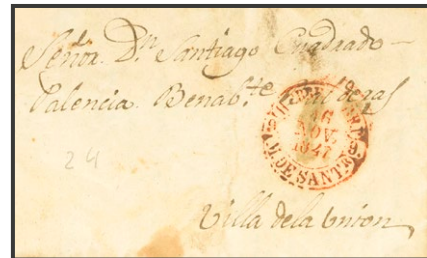 Señor Dn Santiago Cuadrado
Palencia Benabte
16
NOV.
1847
DE SANT
24
Villa dela Union